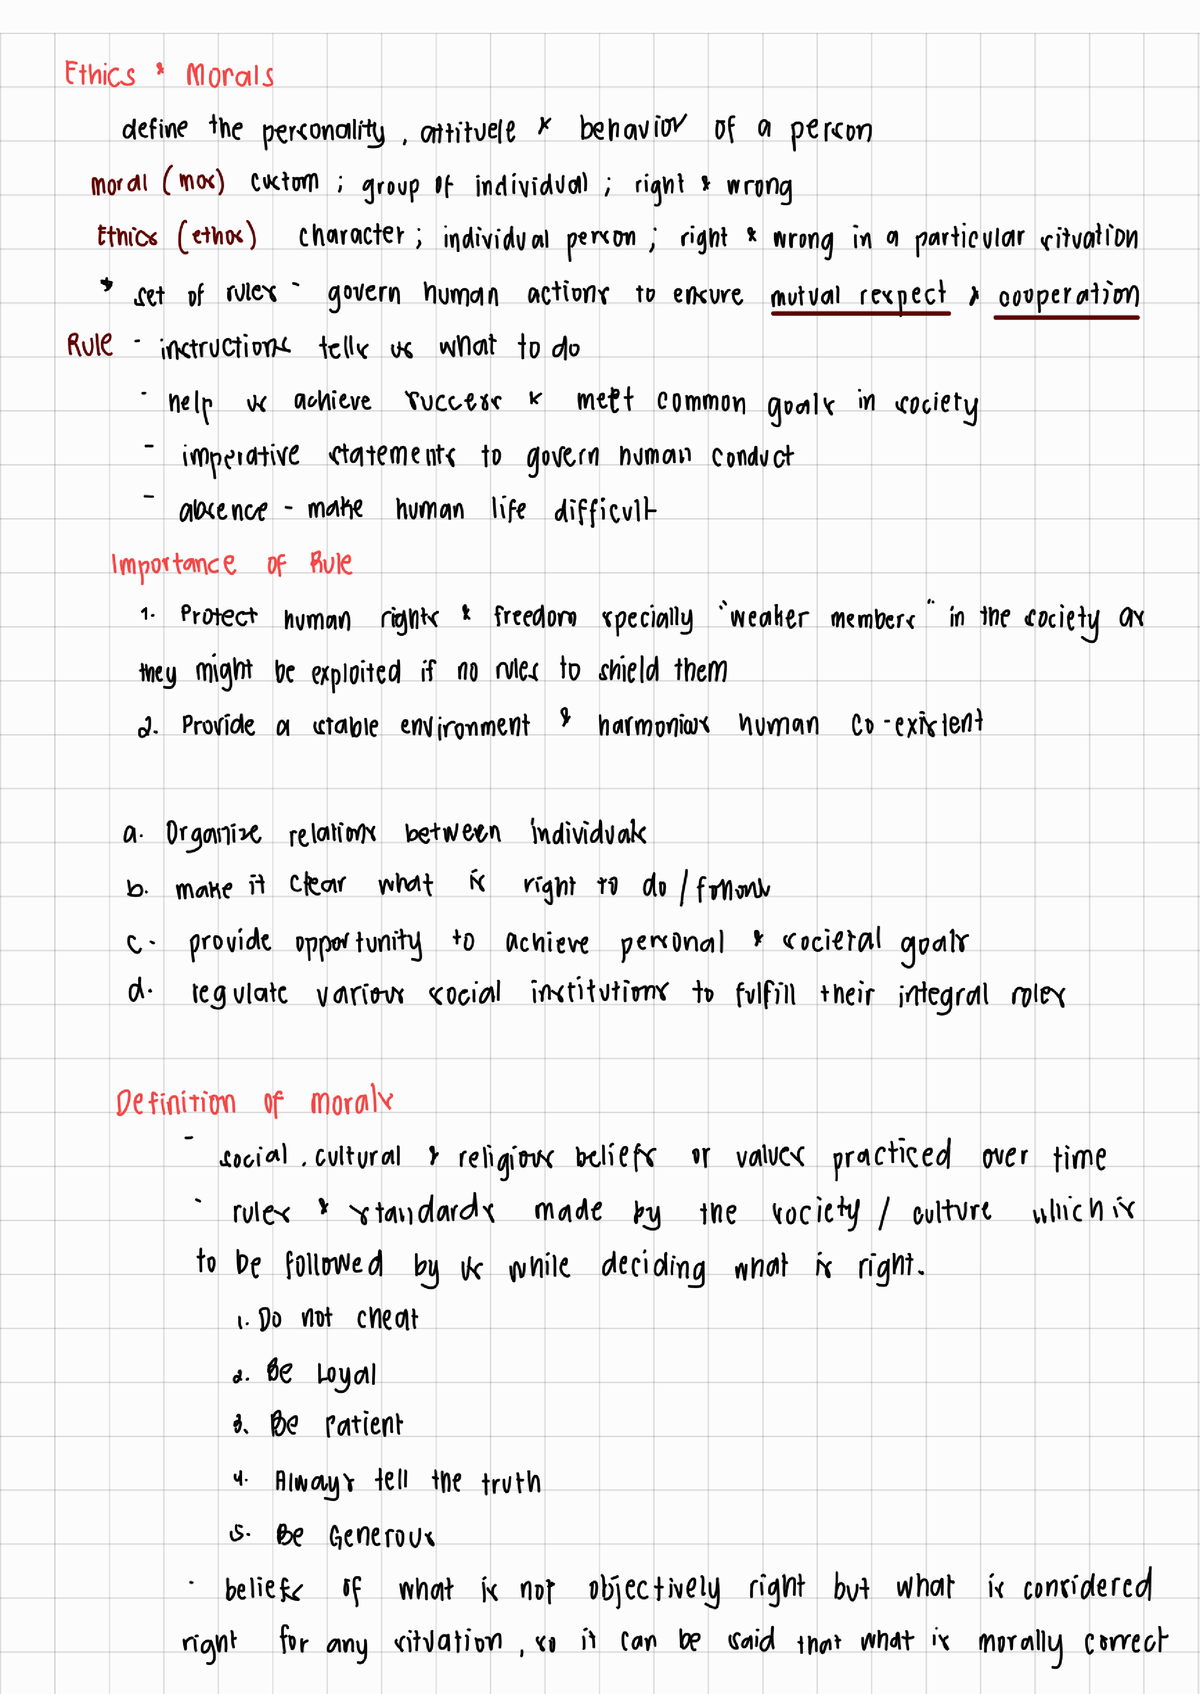 Ethics & Morals
define the personality, attitude & behavior of a person
moral (mos) custom ; group of individual ; right & wrong
Ethics (ethos) character ; individual person ; right & wrong in a particular situation
* set of rules - govern human actions to ensure mutual respect & cooperation
Rule - instructions tells us what to do
- help us achieve success & meet common goals in society
- imperative statements to govern human conduct
- absence - make human life difficult
Importance of Rule
1. Protect human rights & freedom specially "weaker members" in the society as
they might be exploited if no rules to shield them
2. Provide a stable environment & harmonious human co-existent
a. Organize relations between individuals
b. make it clear what is right to do /
c. provide opportunity to achieve personal & societal goals
d. regulate various social institutions to fulfill their integral roles
Definition of morals
- social, cultural & religious beliefs or values practiced over time
- rules & standards made by the society / culture which is
to be followed by us while deciding what is right.
1. Do not cheat
2. Be Loyal
3. Be Patient
4. Always tell the truth
5. Be Generous
- beliefs of what is not objectively right but what is considered
right for any situation, so it can be said that what is morally correct